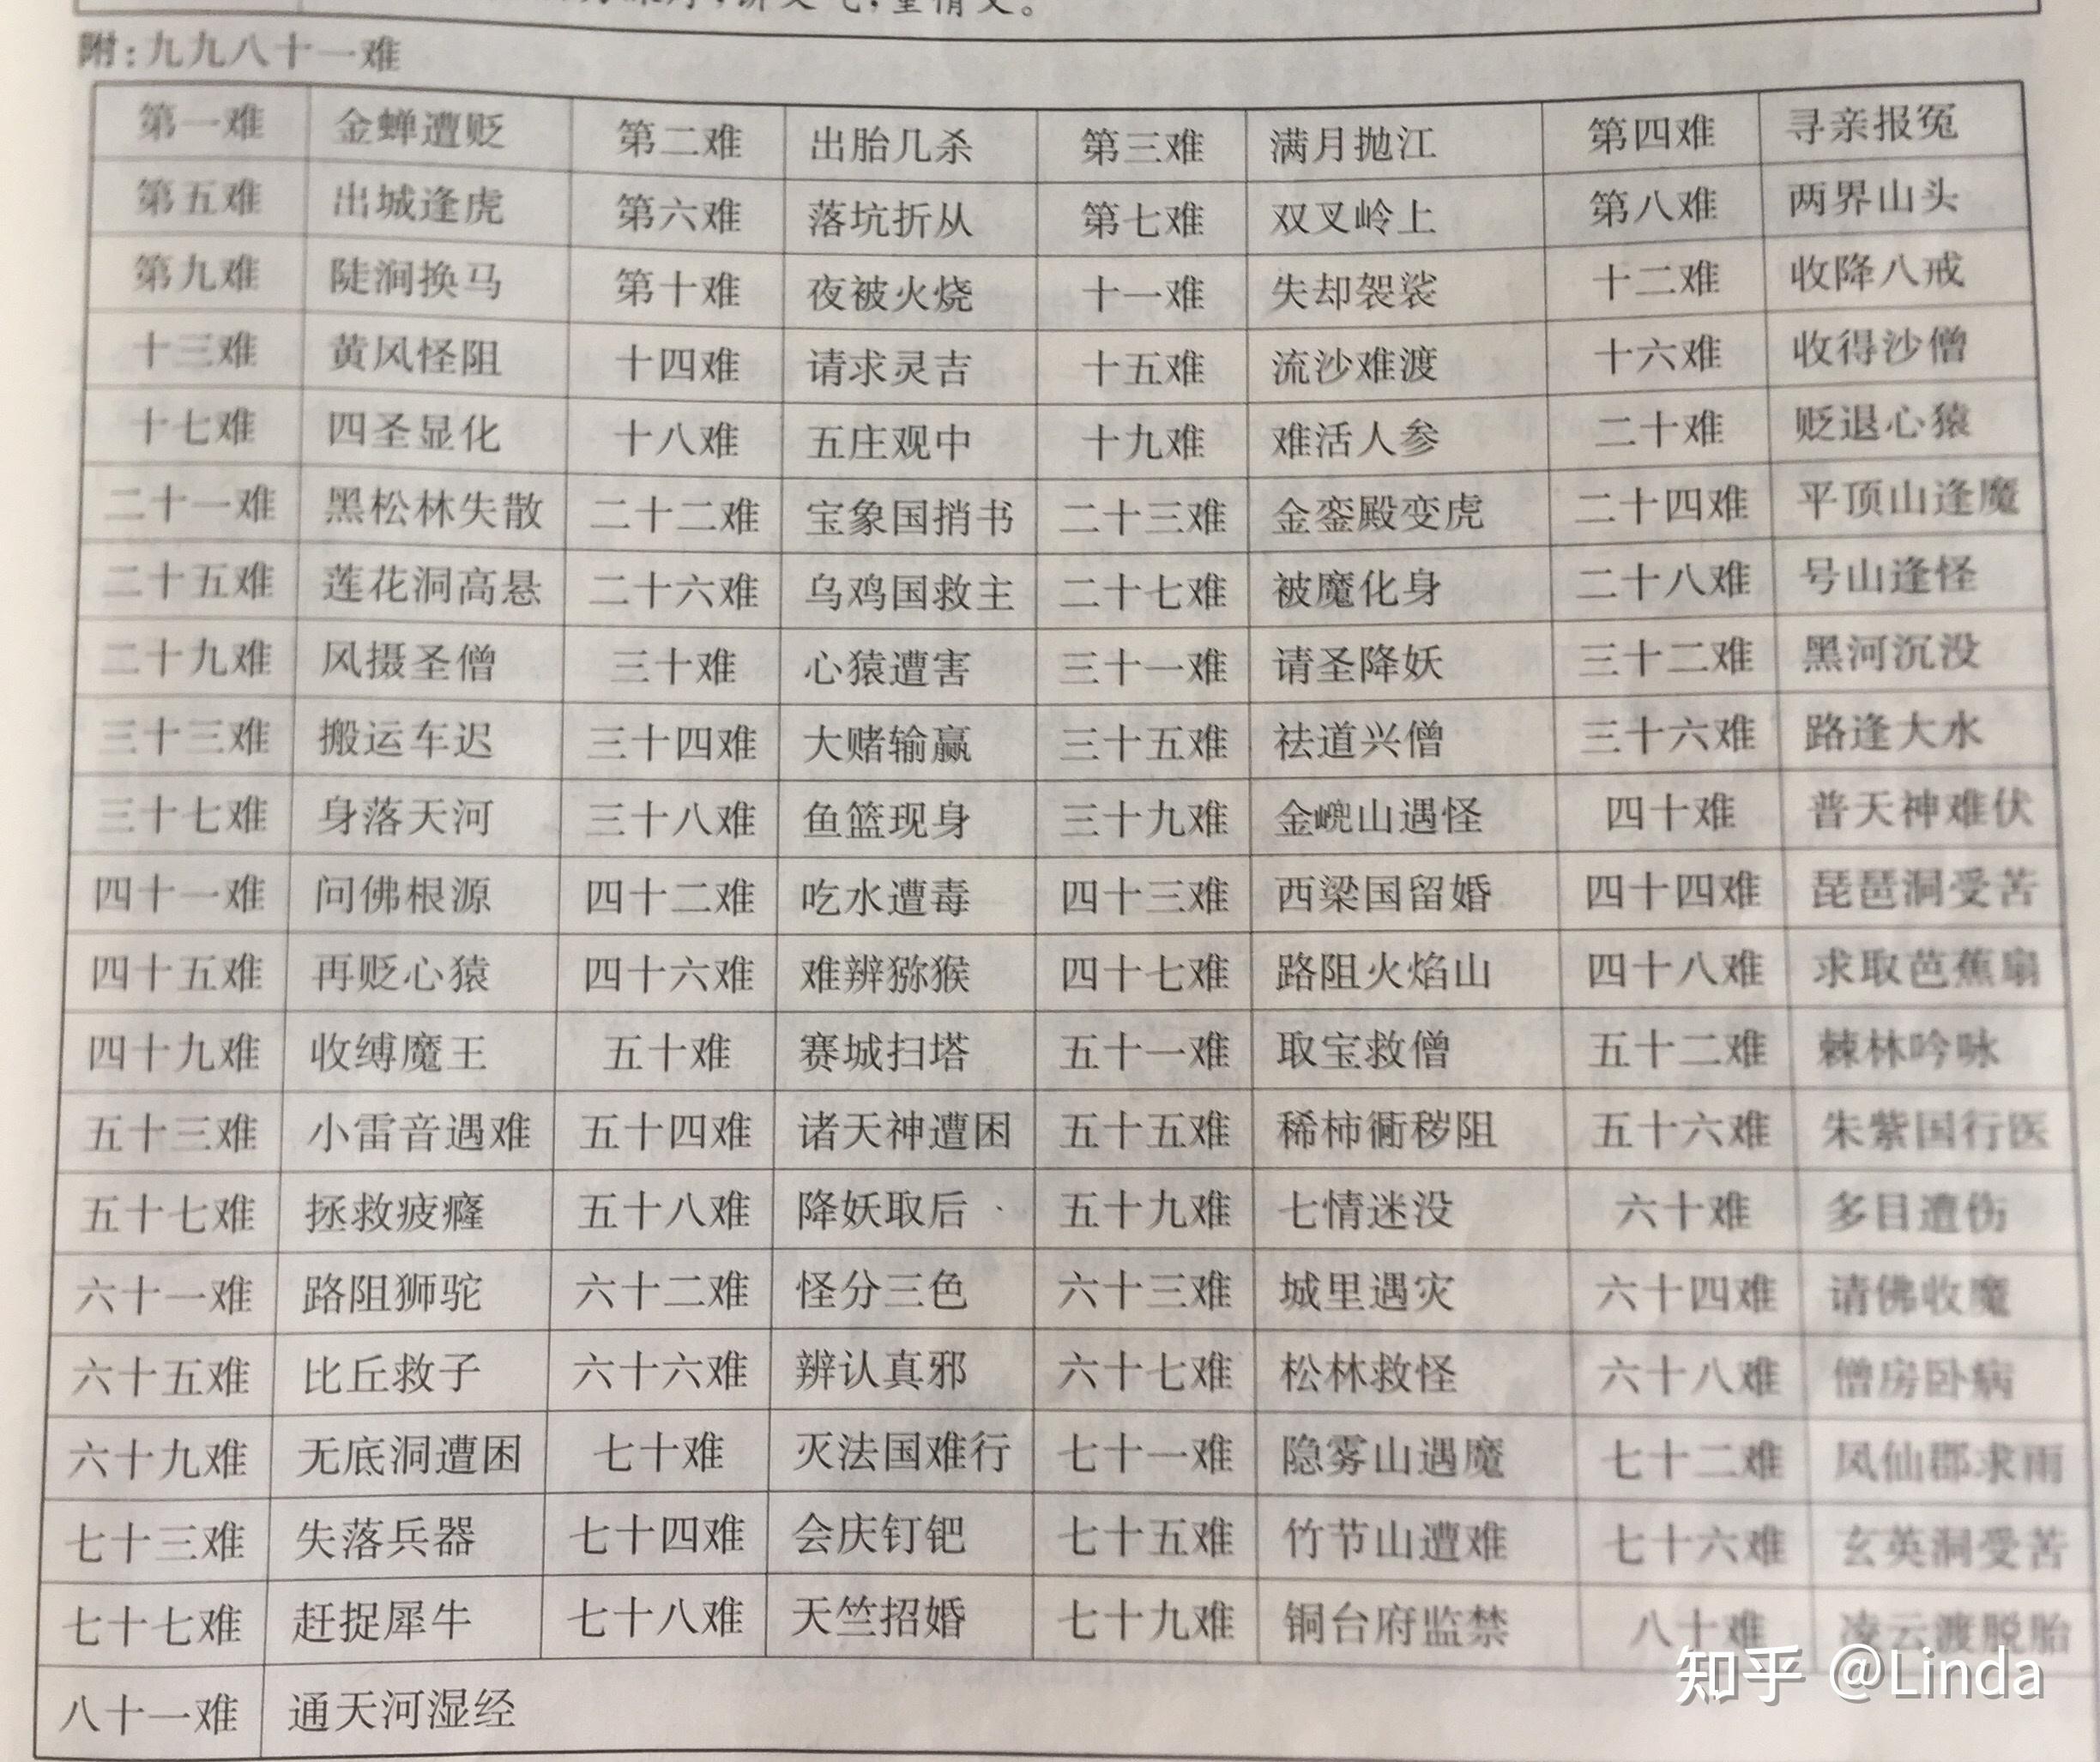 重情义。
附:九九八十一难
第一难 金蝉遭贬 第二难 出胎几杀 第三难 满月抛江 第四难 寻亲报冤
第五难 出城逢虎 第六难 落坑折从 第七难 双叉岭上 第八难 两界山头
第九难 陡涧换马 第十难 夜被火烧 十一难 失却袈裟 十二难 收降八戒
十三难 黄风怪阻 十四难 请求灵吉 十五难 流沙难渡 十六难 收得沙僧
十七难 四圣显化 十八难 五庄观中 十九难 难活人参 二十难 贬退心猿
二十一难 黑松林失散 二十二难 宝象国捎书 二十三难 金銮殿变虎 二十四难 平顶山逢魔
二十五难 莲花洞高悬 二十六难 乌鸡国救主 二十七难 被魔化身 二十八难 号山逢怪
二十九难 风摄圣僧 三十难 心猿遭害 三十一难 请圣降妖 三十二难 黑河沉没
三十三难 搬运车迟 三十四难 大赌输赢 三十五难 祛道兴僧 三十六难 路逢大水
三十七难 身落天河 三十八难 鱼篮现身 三十九难 金㟴山遇怪 四十难 普天神难伏
四十一难 问佛根源 四十二难 吃水遭毒 四十三难 西梁国留婚 四十四难 琵琶洞受苦
四十五难 再贬心猿 四十六难 难辨猕猴 四十七难 路阻火焰山 四十八难 求取芭蕉扇
四十九难 收缚魔王 五十难 赛城扫塔 五十一难 取宝救僧 五十二难 棘林吟咏
五十三难 小雷音遇难 五十四难 诸天神遭困 五十五难 稀柿衕秽阻 五十六难 朱紫国行医
五十七难 拯救疲癃 五十八难 降妖取后 五十九难 七情迷没 六十难 多目遭伤
六十一难 路阻狮驼 六十二难 怪分三色 六十三难 城里遇灾 六十四难 请佛收魔
六十五难 比丘救子 六十六难 辨认真邪 六十七难 松林救怪 六十八难 僧房卧病
六十九难 无底洞遭困 七十难 灭法国难行 七十一难 隐雾山遇魔 七十二难 凤仙郡求雨
七十三难 失落兵器 七十四难 会庆钉钯 七十五难 竹节山遭难 七十六难 玄英洞受苦
七十七难 赶捉犀牛 七十八难 天竺招婚 七十九难 铜台府监禁 八十难 凌云渡脱胎
八十一难 通天河湿经
知乎 @Linda